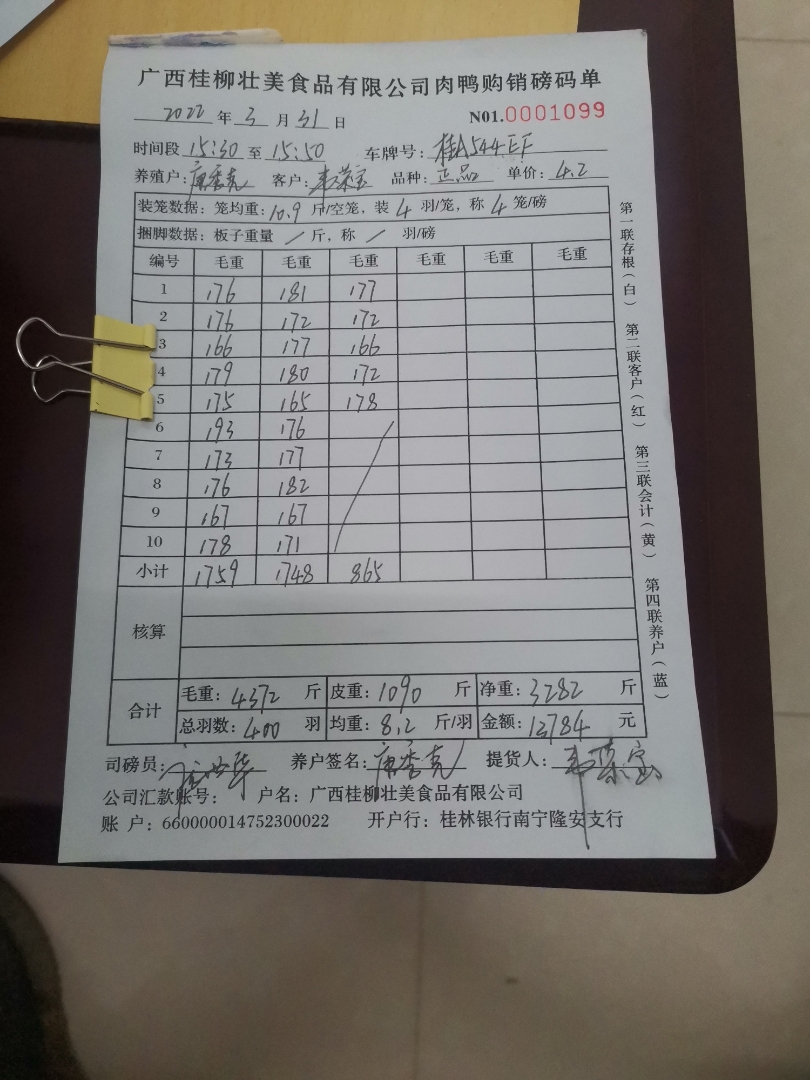 广西桂柳壮美食品有限公司肉鸭购销磅码单
2022 年 3 月 31 日 N01.0001099
时间段 15:30 至 15:50 车牌号: 桂A544EF
养殖户: 客户: 韦荣宝 品种: 正品 单价: 4.2
装笼数据: 笼均重: 10.9 斤/空笼, 装 4 羽/笼, 称 4 笼/磅
捆脚数据: 板子重量 / 斤, 称 / 羽/磅
编号 毛重 毛重 毛重 毛重 毛重 毛重
1 176 181 177
2 176 172 172
3 166 177 166
4 179 180 172
5 175 165 178
6 193 176
7 173 177
8 176 182
9 167 167
10 178 171
小计 1759 1748 865
核算
合计
毛重: 4372 斤 皮重: 1090 斤 净重: 3282 斤
总羽数: 400 羽 均重: 8.2 斤/羽 金额: 13784 元
司磅员: 养户签名: 提货人:
公司汇款账号: 户名: 广西桂柳壮美食品有限公司
账 户: 660000014752300022 开户行: 桂林银行南宁隆安支行
第一联存根(白) 第二联客户(红) 第三联会计(黄) 第四联养户(蓝)